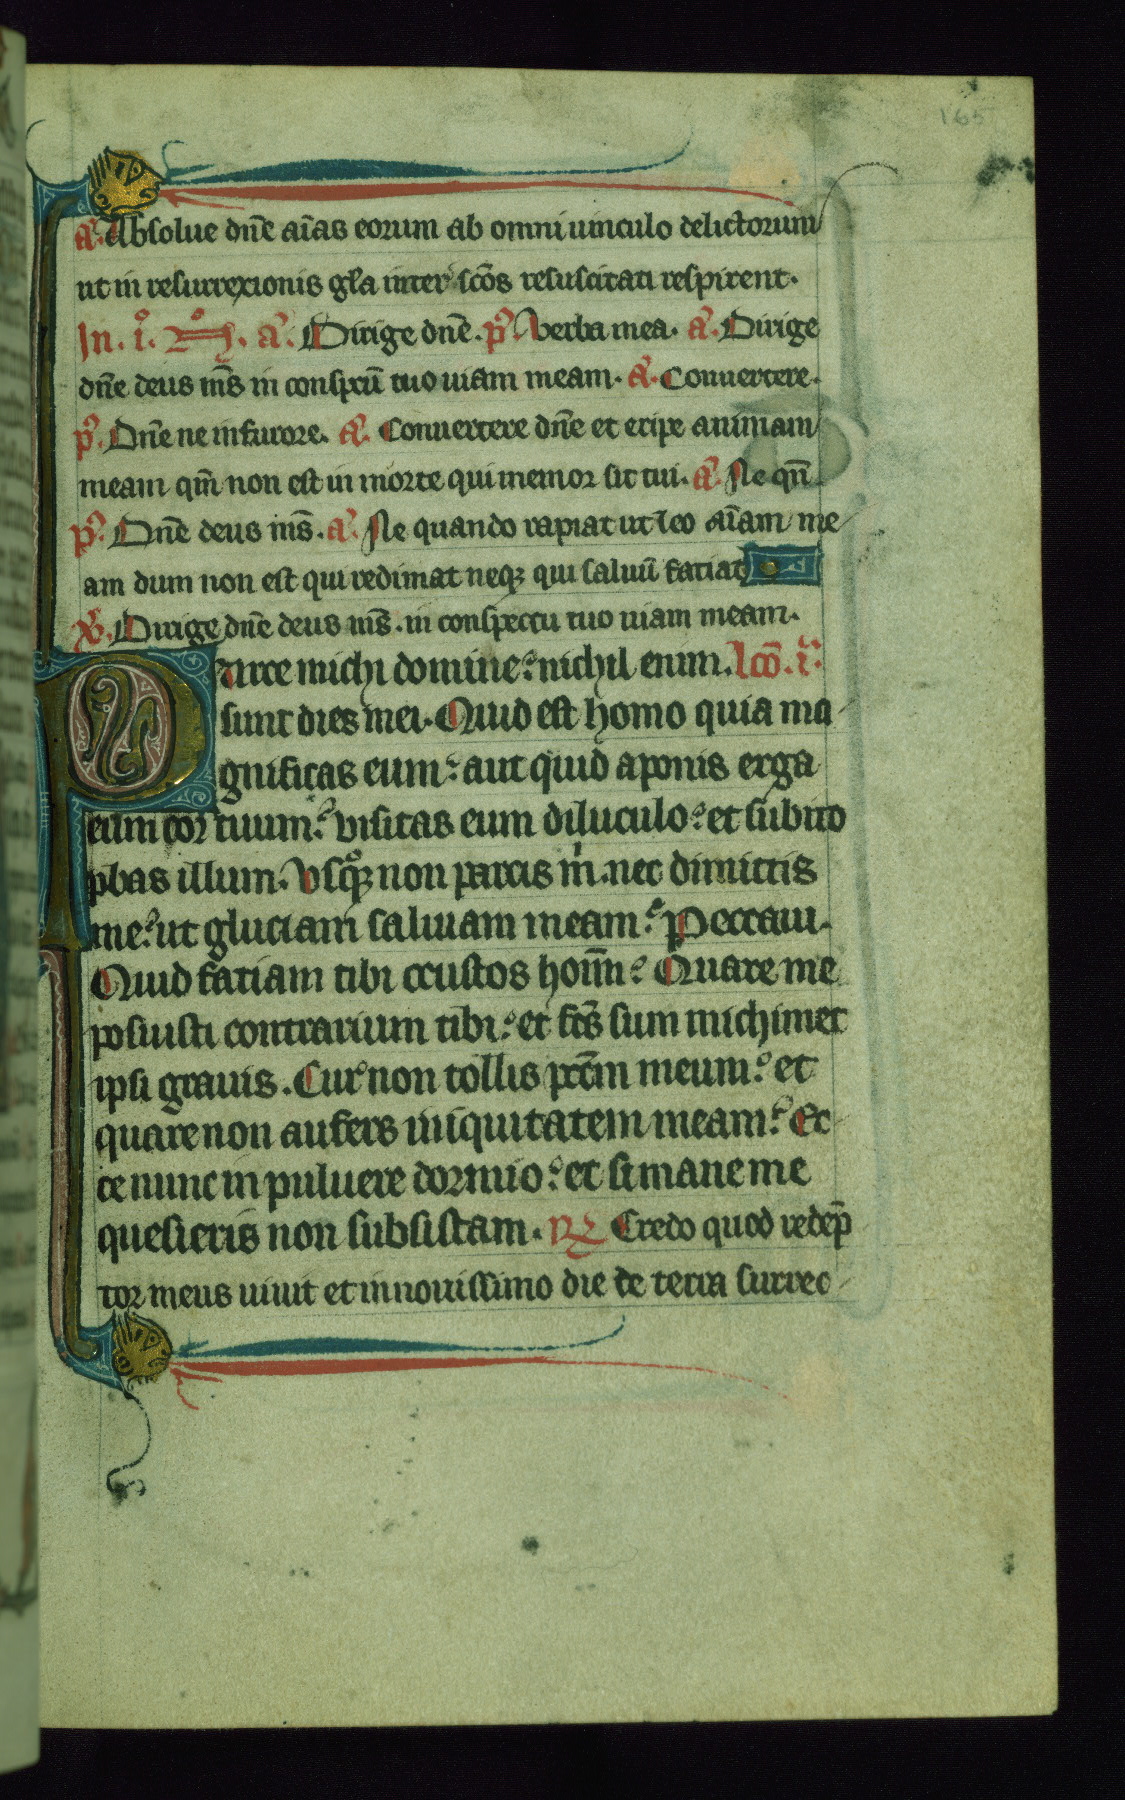 165
a. Absolue dn̄e aīas eorum ab omni uinculo delictorum
ut in resurrexionis gl̄a inter scōs resuscitati respirent.
In. i°. N°. a. Dirige dn̄e. p̄s. Verba mea. a. Dirige
dn̄e deus m̄s in conspc̄tu tuo uiam meam. a. Conuertere.
p̄s. Dn̄e ne in furore. a. Conuertere dn̄e et eripe animam
meam qm̄ non est in morte qui memor sit tui. a. Ne qn̄
p̄s. Dn̄e deus m̄s. a. Ne quando rapiat ut leo aīam me
am dum non est qui redimat neqꝫ qui saluū faciat
℣. Dirige dn̄e deus m̄s. in conspectu tuo uiam meam.
Parce michi domine: nichil enim. lc̄o. i.ᵃ
sunt dies mei. Quid est homo quia ma
gnificas eum: aut quid aponis erga
eum cor tuum? visitas eum diluculo: et subito
ꝓbas illum. Vsqꝫ non parcis m̄. nec dimittis
me: ut gluciam saliuam meam? Peccaui.
Quid faciam tibi o custos hoīm? Quare me
posuisti contrarium tibi: et fc̄s sum michimet
ipsi grauis. Cur non tollis pcc̄m meum? et
quare non aufers iniquitatem meam? Ec
ce nunc in puluere dormio: et si mane me
quesieris non subsistam. ℟ Credo quod redēp
tor meus uiuit et in nouissimo die de terra surrec